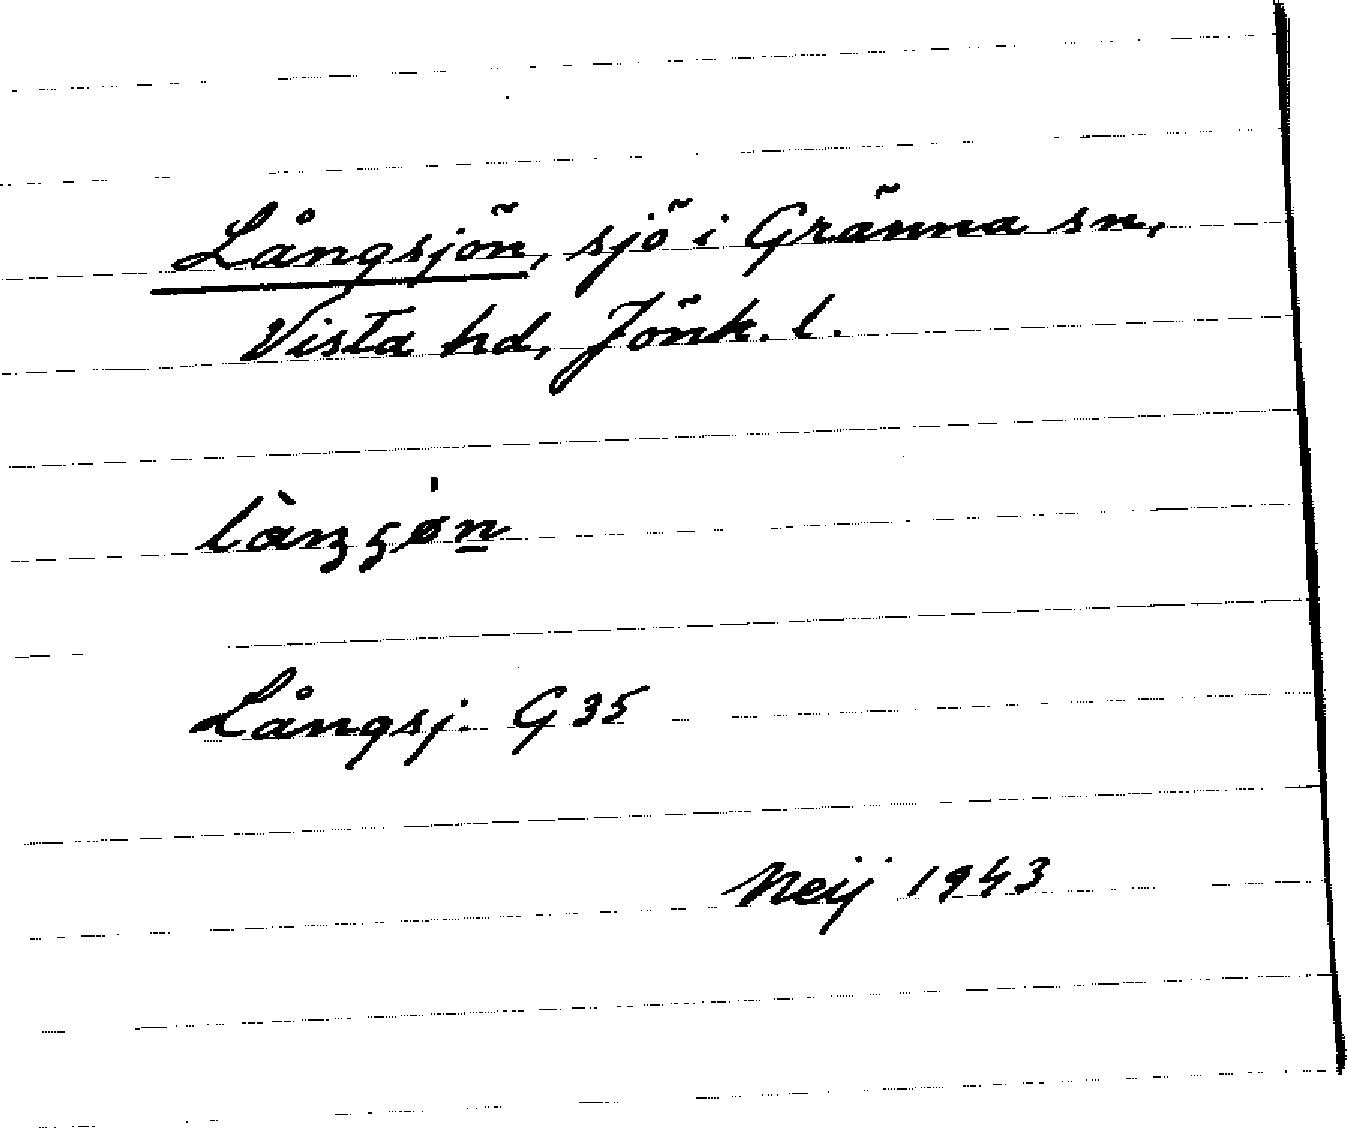 Långsjön, sjö i Gränna sn,
Vista hd, Jönk. l.
Långsj. G 35
Neij 1943